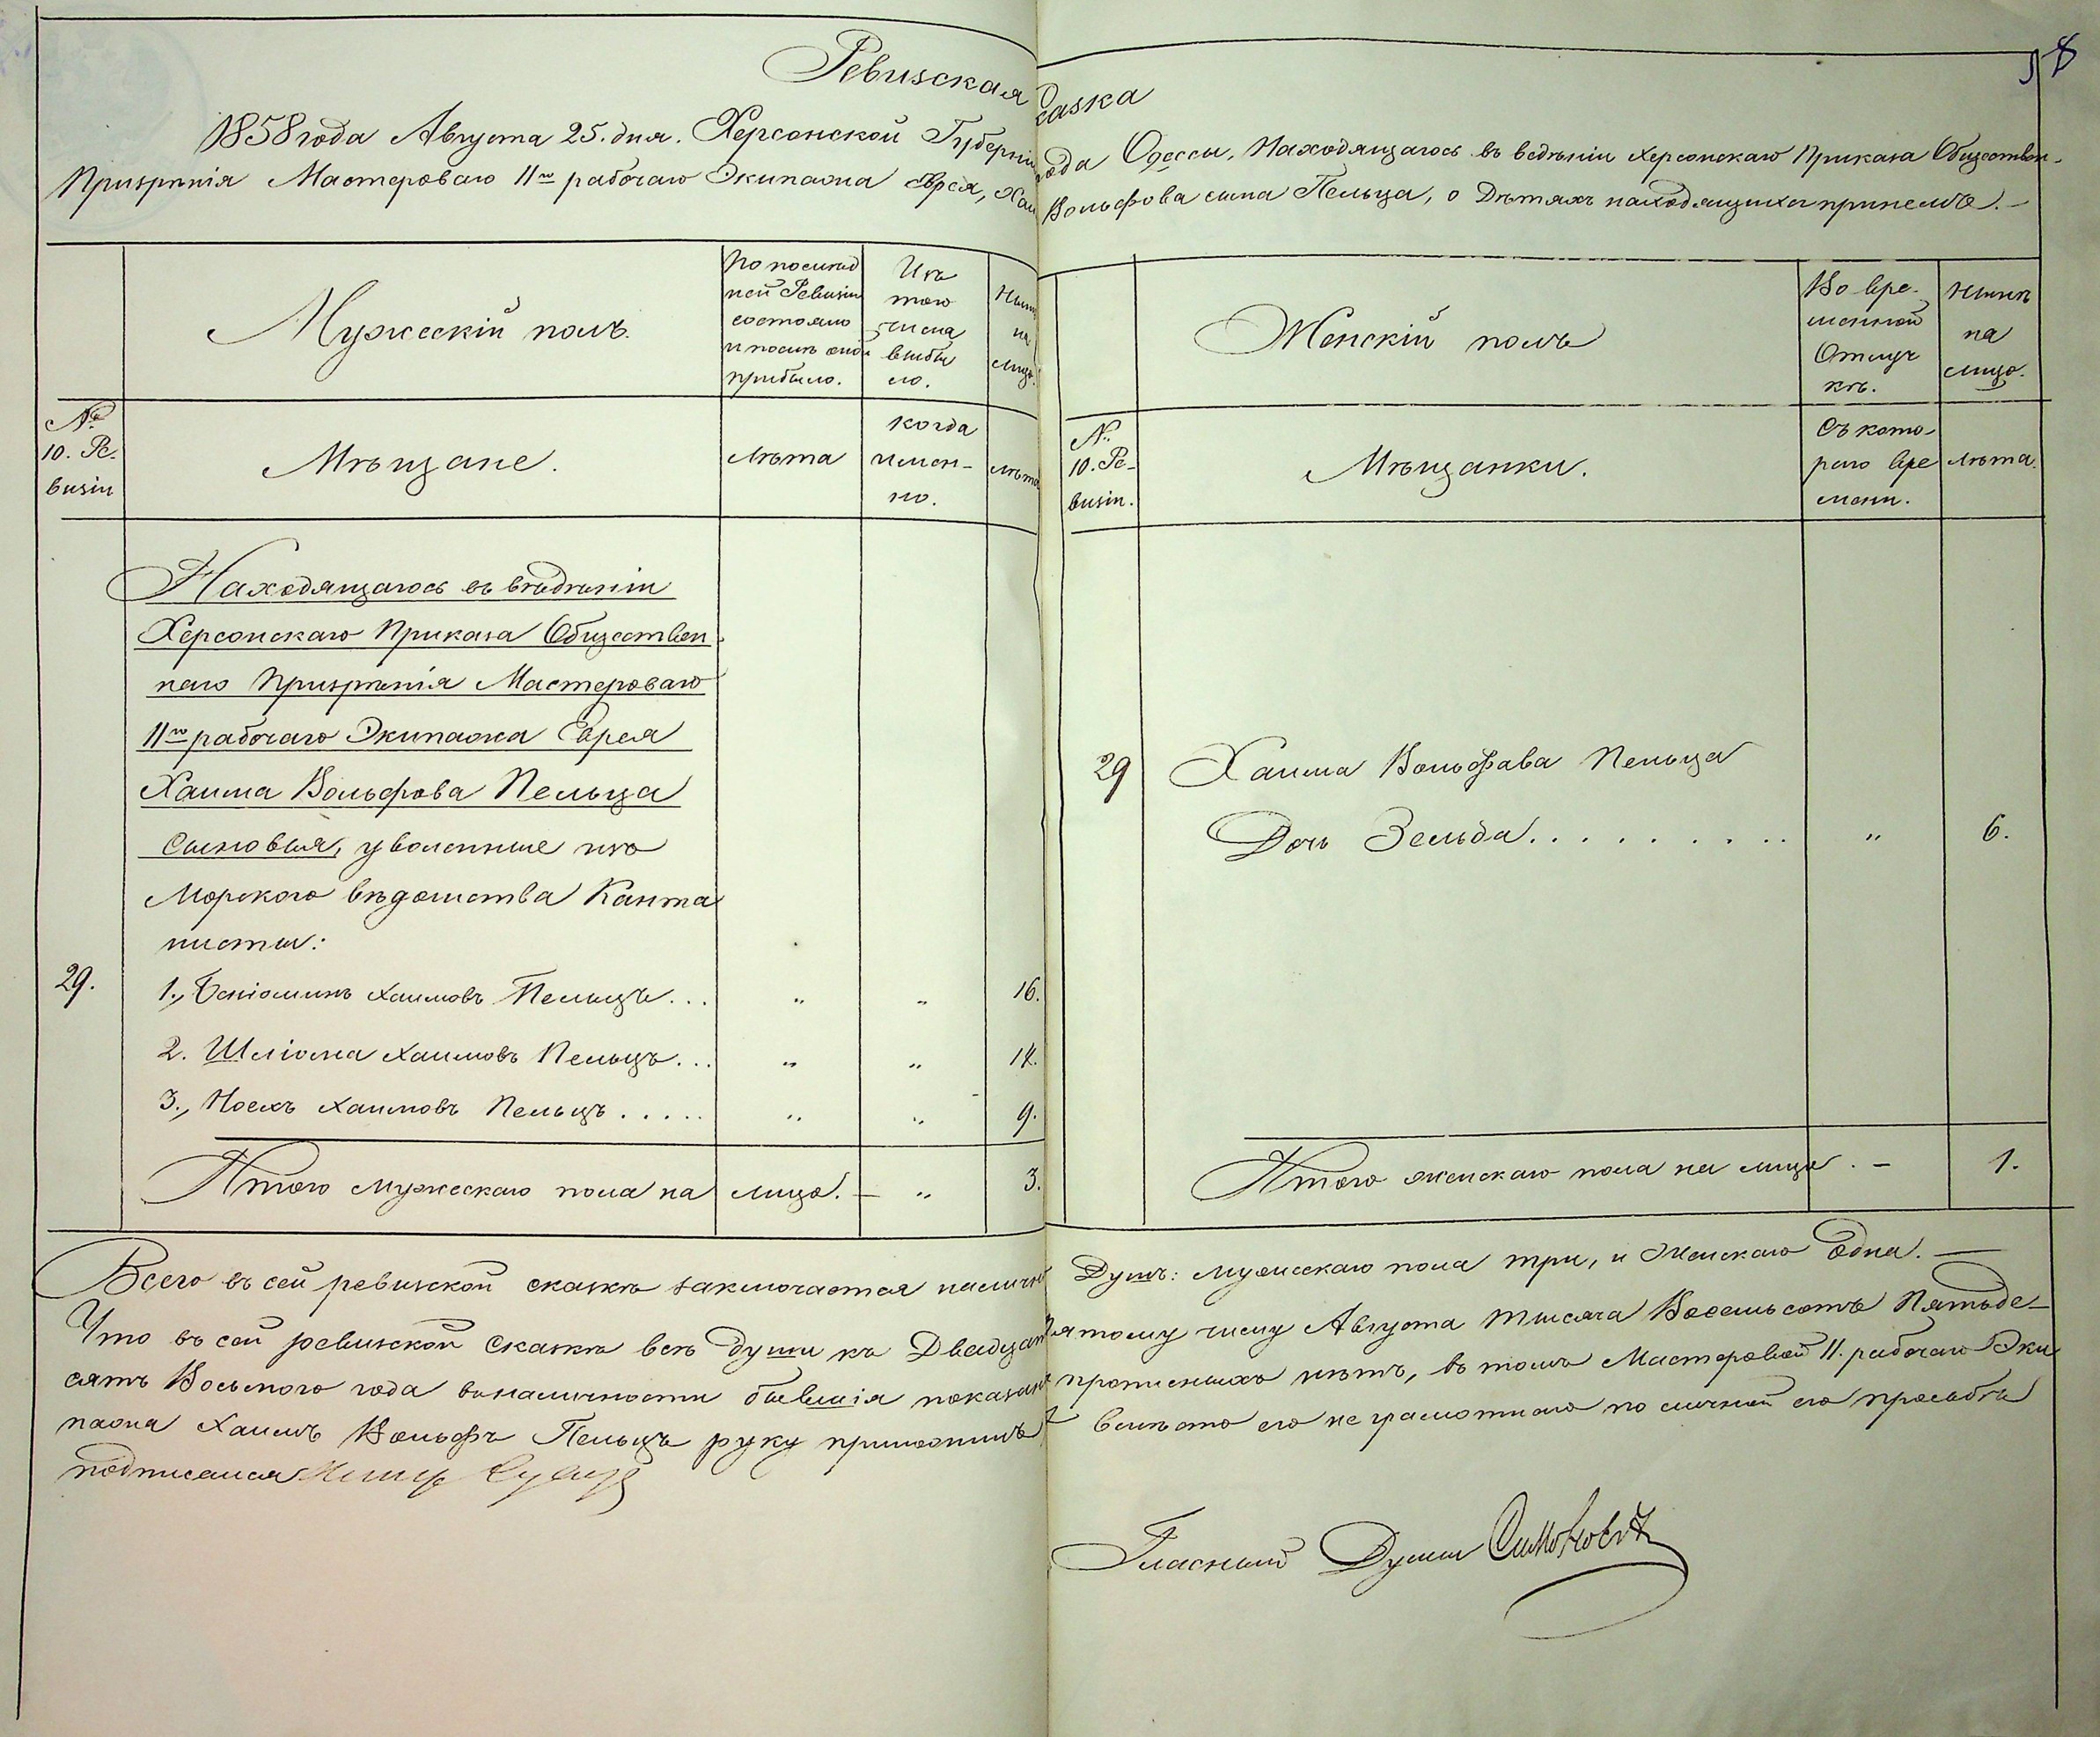 58
Ревизская сказка
1858 года Августа 25. дня. Херсонской Губерніи города Одессы, Находящагось въ веденіи Херсонскаго Приказа Обществен-
Призрѣнія Мастероваго 11го рабочаго Экипажа Еврея, Хаима Вольфова сына Пельца, о Дѣтяхъ находящихся принемъ. —
Мужескій полъ.
По послѣд
ней Ревизіи
состояло
и послѣ оной
прибыло.
Изъ
того
числа
выбы
ло.
Нынѣ
на
лицо.
№
10. Ре-
визіи
Мѣщане.
Лѣта
Когда
имен-
но.
Лѣта
Находящагось въ вѣдѣніи
Херсонскаго Приказа Обществен
наго Призрѣнія Мастероваго
11го рабочаго Экипажа Еврея
Хаима Вольфова Пельца
Сыновья, уволенные изъ
Морскаго вѣдомства Канто
нисты:
29.
1., Беніоминъ Хаимовъ Пельцъ... " " 16.
2. Шліома Хаимовъ Пельцъ... " " 14.
3., Носехъ Хаимовъ Пельцъ..... " " 9.
Итого мужескаго пола на лицо. — " 3.
Женскій полъ
Во вре-
менной
Отлуч
кѣ.
Нынѣ
на
лицо.
№
10. Ре-
визіи.
Мѣщанки.
Съ кото-
раго вре
мени.
Лѣта.
29 Хаима Вольфава Пельца
Дочь Зельда.......... " 6.
Итого женскаго пола на лицо. — 1.
Всего въ сей ревизской сказкѣ заключается налицо Душъ: мужескаго пола три, и Женскаго Одна. —
Что въ сей ревизской Сказкѣ всѣ души къ Двадцать пятому числу Августа тысяча Восемьсотъ Пятьде-
сятъ Восьмого года вналичности бывшія показаны прописныхъ нѣтъ, въ томъ Мастеровой 11. рабочаго Эки
пажа Хаимъ Вольфъ Пельцъ руку приложилъ А вмѣсто его не грамотнаго по личной его прозьбѣ
подписался
Гласный Думы Симоновичъ